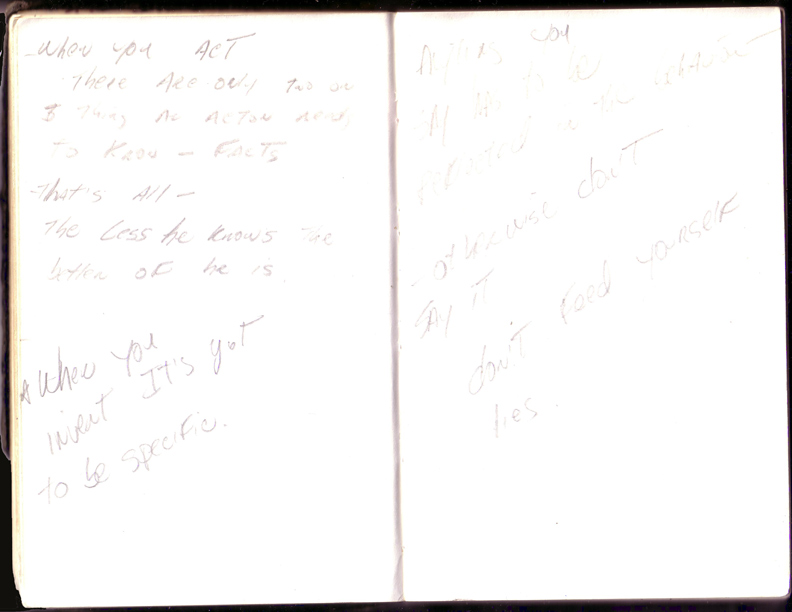 - When you ACT
There ARE only two or
3 Things AN ACTOR needs
TO KNOW - FACTS
- That's All -
The Less he knows The
better oF he is
When you
invent It's got
to be specific.
Anything you
SAY HAS to be
reflected in the behavior
- otherwise don't
SAY IT
don't Feed yourselF
lies.